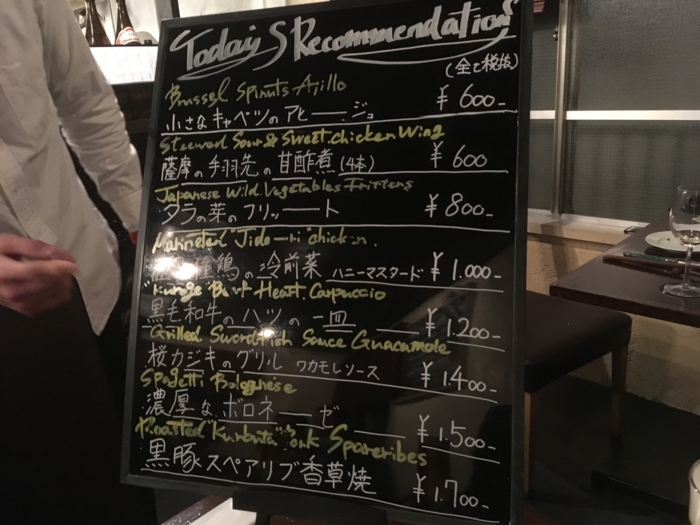 Today's Recommendation
(全て税抜)
Brussel Sprouts Ajillo
小さなキャベツのアヒージョ ¥600-
Steewed Sour & Sweet chicken Wing
薩摩の手羽先の甘酢煮(4本) ¥600
Japanese Wild Vegetables frittens
タラの芽のフリット ¥800-
Marineted "Jido-ri" chicken.
鶏の冷前菜 ハニーマスタード ¥1.000-
Beef Heart Carpaccio
黒毛和牛のハツの一皿 ¥1.200-
Grilled Swordfish Sauce Guacamole
桜カジキのグリル ワカモレソース ¥1.400-
Spagetti Bolognese
濃厚なボロネーゼ ¥1.500-
Roasted "Kurobuta" Pork Spareribes
黒豚スペアリブ香草焼 ¥1.700-